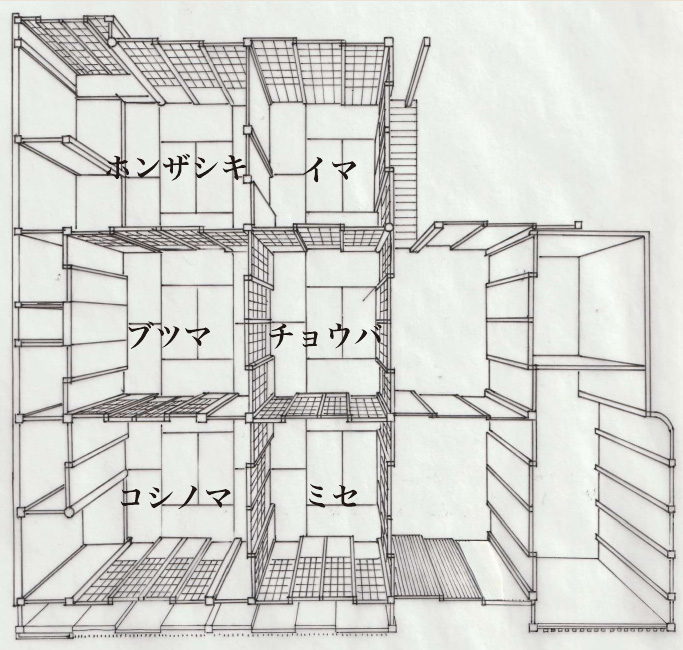 ホンザシキ
イマ
ブツマ
チョウバ
コシノマ
ミセ